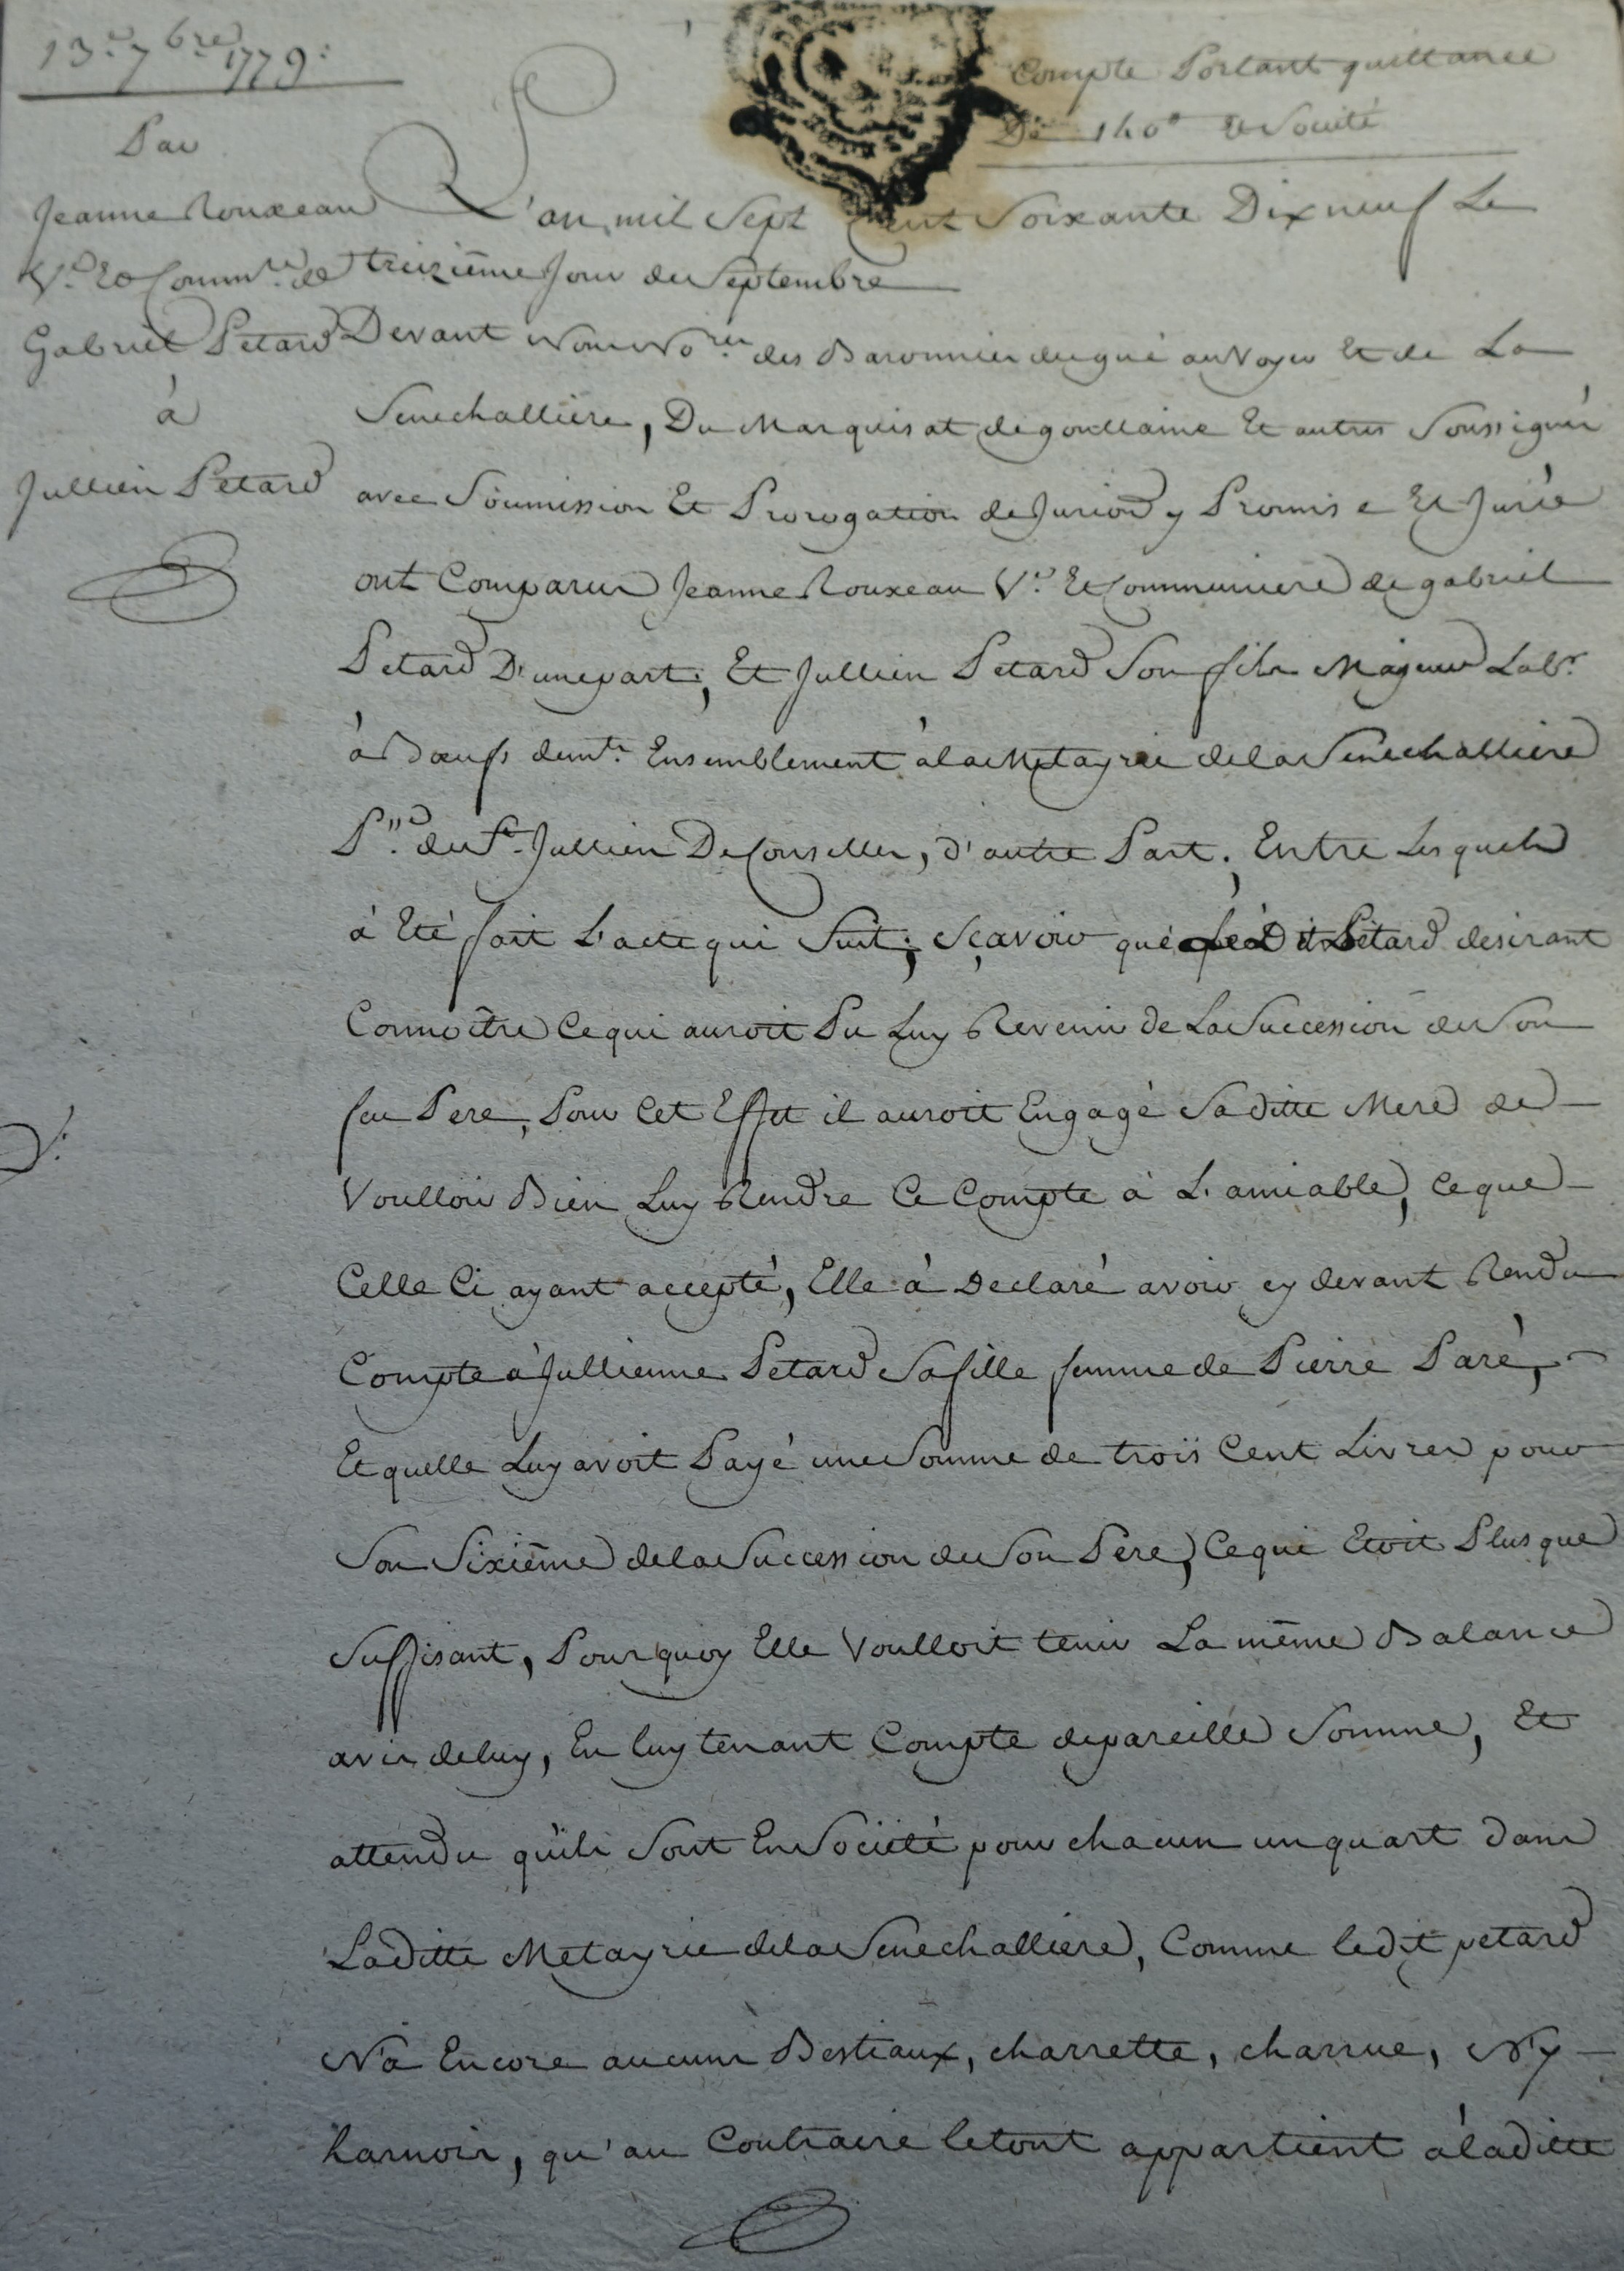 13.e 7bre 1779.
Compte Portant quittance
De 140# et Société
Par
Jeanne Rouxeau
V.e Et Commre. de
Gabriel Petard
à
Jullien Petard
L'an mil Sept Cent Soixante Dix neuf Le
treizième Jour de Septembre
Devant Nous Nores. des Baronnies du gué au Voyer Et de La
Senechalliere, Du Marquisat de goullaine Et autres Soussignés
avec Soumission Et Prorogation de Jurion. y Promise Et Jurée
ont Comparus Jeanne Rouxeau V.e Et Communiere de gabriel
Petard D'une part; Et Jullien Petard Son fils Majeur Labr.
à Bœufs demts. Ensemblement à la Metayrie de la Senechalliere
Psse. de St. Jullien De Conselles, d'autre Part. Entre Lesquels
à Eté fait L'acte qui Suit; Sçavoir que Le Dit Petard desirant
Connoître Ce qui auroit Pu Luy Revenir de La Succession de Son
feu Pere, Pour Cet Effet il auroit Engagé Saditte Mere de
Voulloir Bien Luy Rendre Ce Compte à L'amiable, Ce que
Celle Ci ayant accepté, Elle à Declaré avoir cy devant Rendu
Compte à Jullienne Petard Sa fille femme de Pierre Paré,
Et quelle Luy avoit Payé une Somme de trois Cent Livres pour
Son Sixiême de la Succession de Son Pere, Ce qui Etoit Plus que
Suffisant, Pourquoy Elle Voulloit tenir La même Balance
avis de luy, En luy tenant Compte de pareille Somme, Et
attendu qu'ils Sont En Société pour chacun un quart dans
Laditte Metayrie de la Senechalliere, Comme ledit petard
N'a Encore aucuns Bestiaux, charrette, charrue, N'y
harnois, qu'au Contraire le tout appartient à laditte